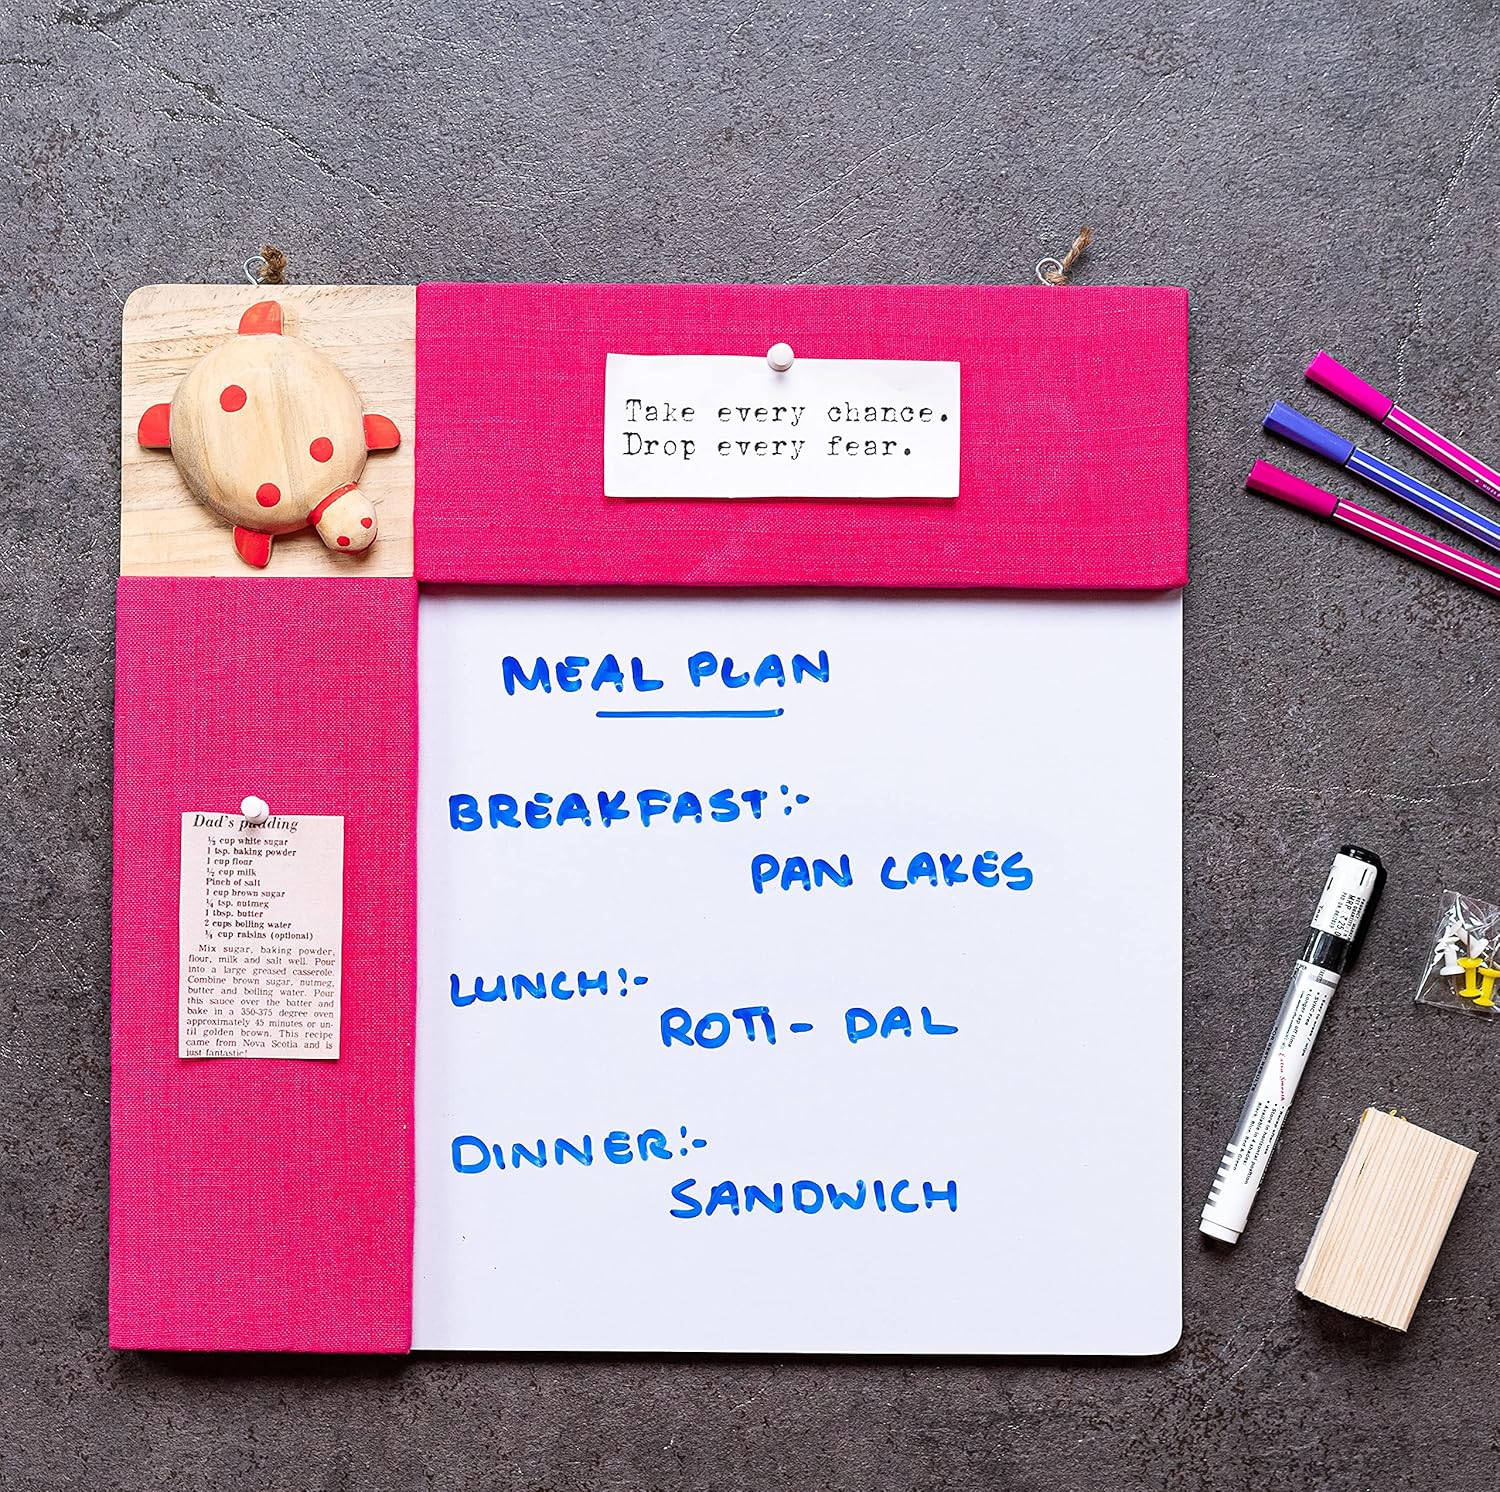 Take every chance.
Drop every fear.
MEAL PLAN
BREAKFAST:-
PAN CAKES
LUNCH:-
ROTI - DAL
DINNER:-
SANDWICH
Dad's pudding
⅓ cup white sugar
1 tsp. baking powder
1 cup flour
½ cup milk
Pinch of salt
1 cup brown sugar
¼ tsp. nutmeg
1 tbsp. butter
2 cups boiling water
¾ cup raisins (optional)
Mix sugar, baking powder,
flour, milk and salt well. Pour
into a large greased casserole.
Combine brown sugar, nutmeg,
butter and boiling water. Pour
this sauce over the batter and
bake in a 350-375 degree oven
approximately 45 minutes or un-
til golden brown. This recipe
came from Nova Scotia and is
just fantastic!